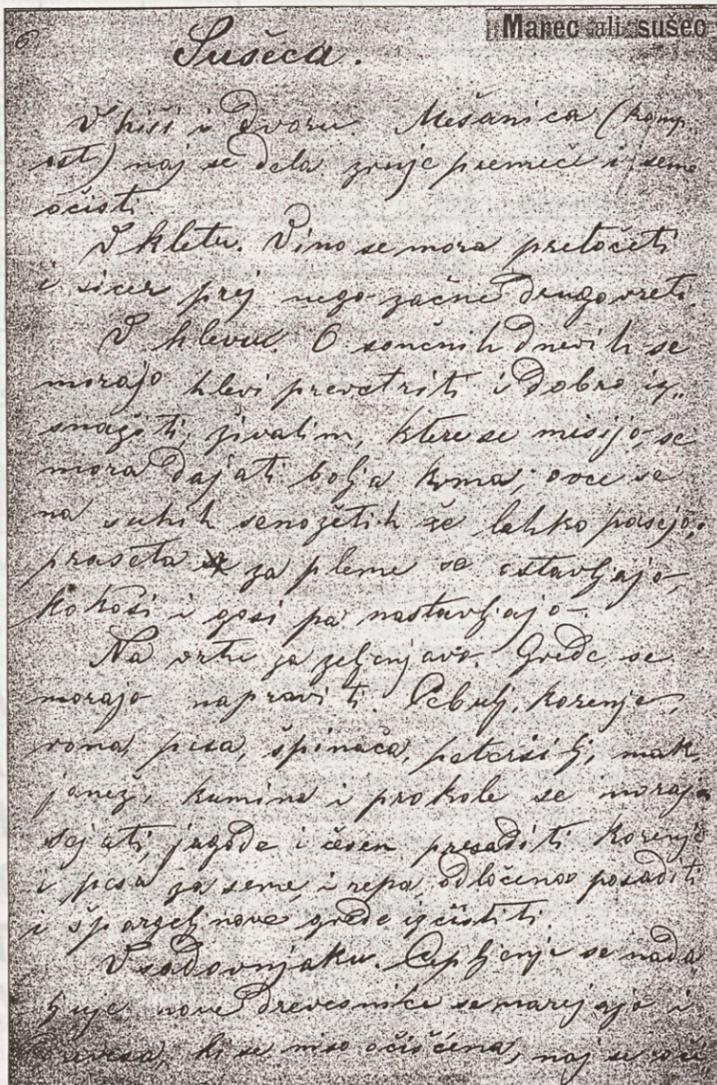 6
Marec ali sušec
Sušeca.
V hiši i dvoru. Mešanica (komp
ost) naj se dela zrnje premeče i seme
očisti.
V kletu. Vino se mora pretočeti
i sicer prej nego začne drugo vreti.
V hlevu. O sončnih dnevih se
morajo hlevi prevetriti i dobro iz„
snažiti, živalim, ktere se misijo, se
mora dajati bolja krma; ovce se
na suhih senožetih že lehko pasejo;
praseta za pleme se ostavljajo,
kokoši i gosi pa nastavljajo.
Na vrtu za zelenjavo. Grede se
morajo napraviti. Čebulj, korenje,
rona, pesa, špinača, petersilj, mak,
janež, kumina i prokole se morajo
sejati, jagode i česen presaditi korenje
i pesa za seme, i repa, odločeno posaditi
i šporgelj nove grede izčistiti.
V sadovnjaku. Cepljenje se nada
ljuje nove drevesnice se marejajo i
drevesa, ki se niso očiščena, naj se